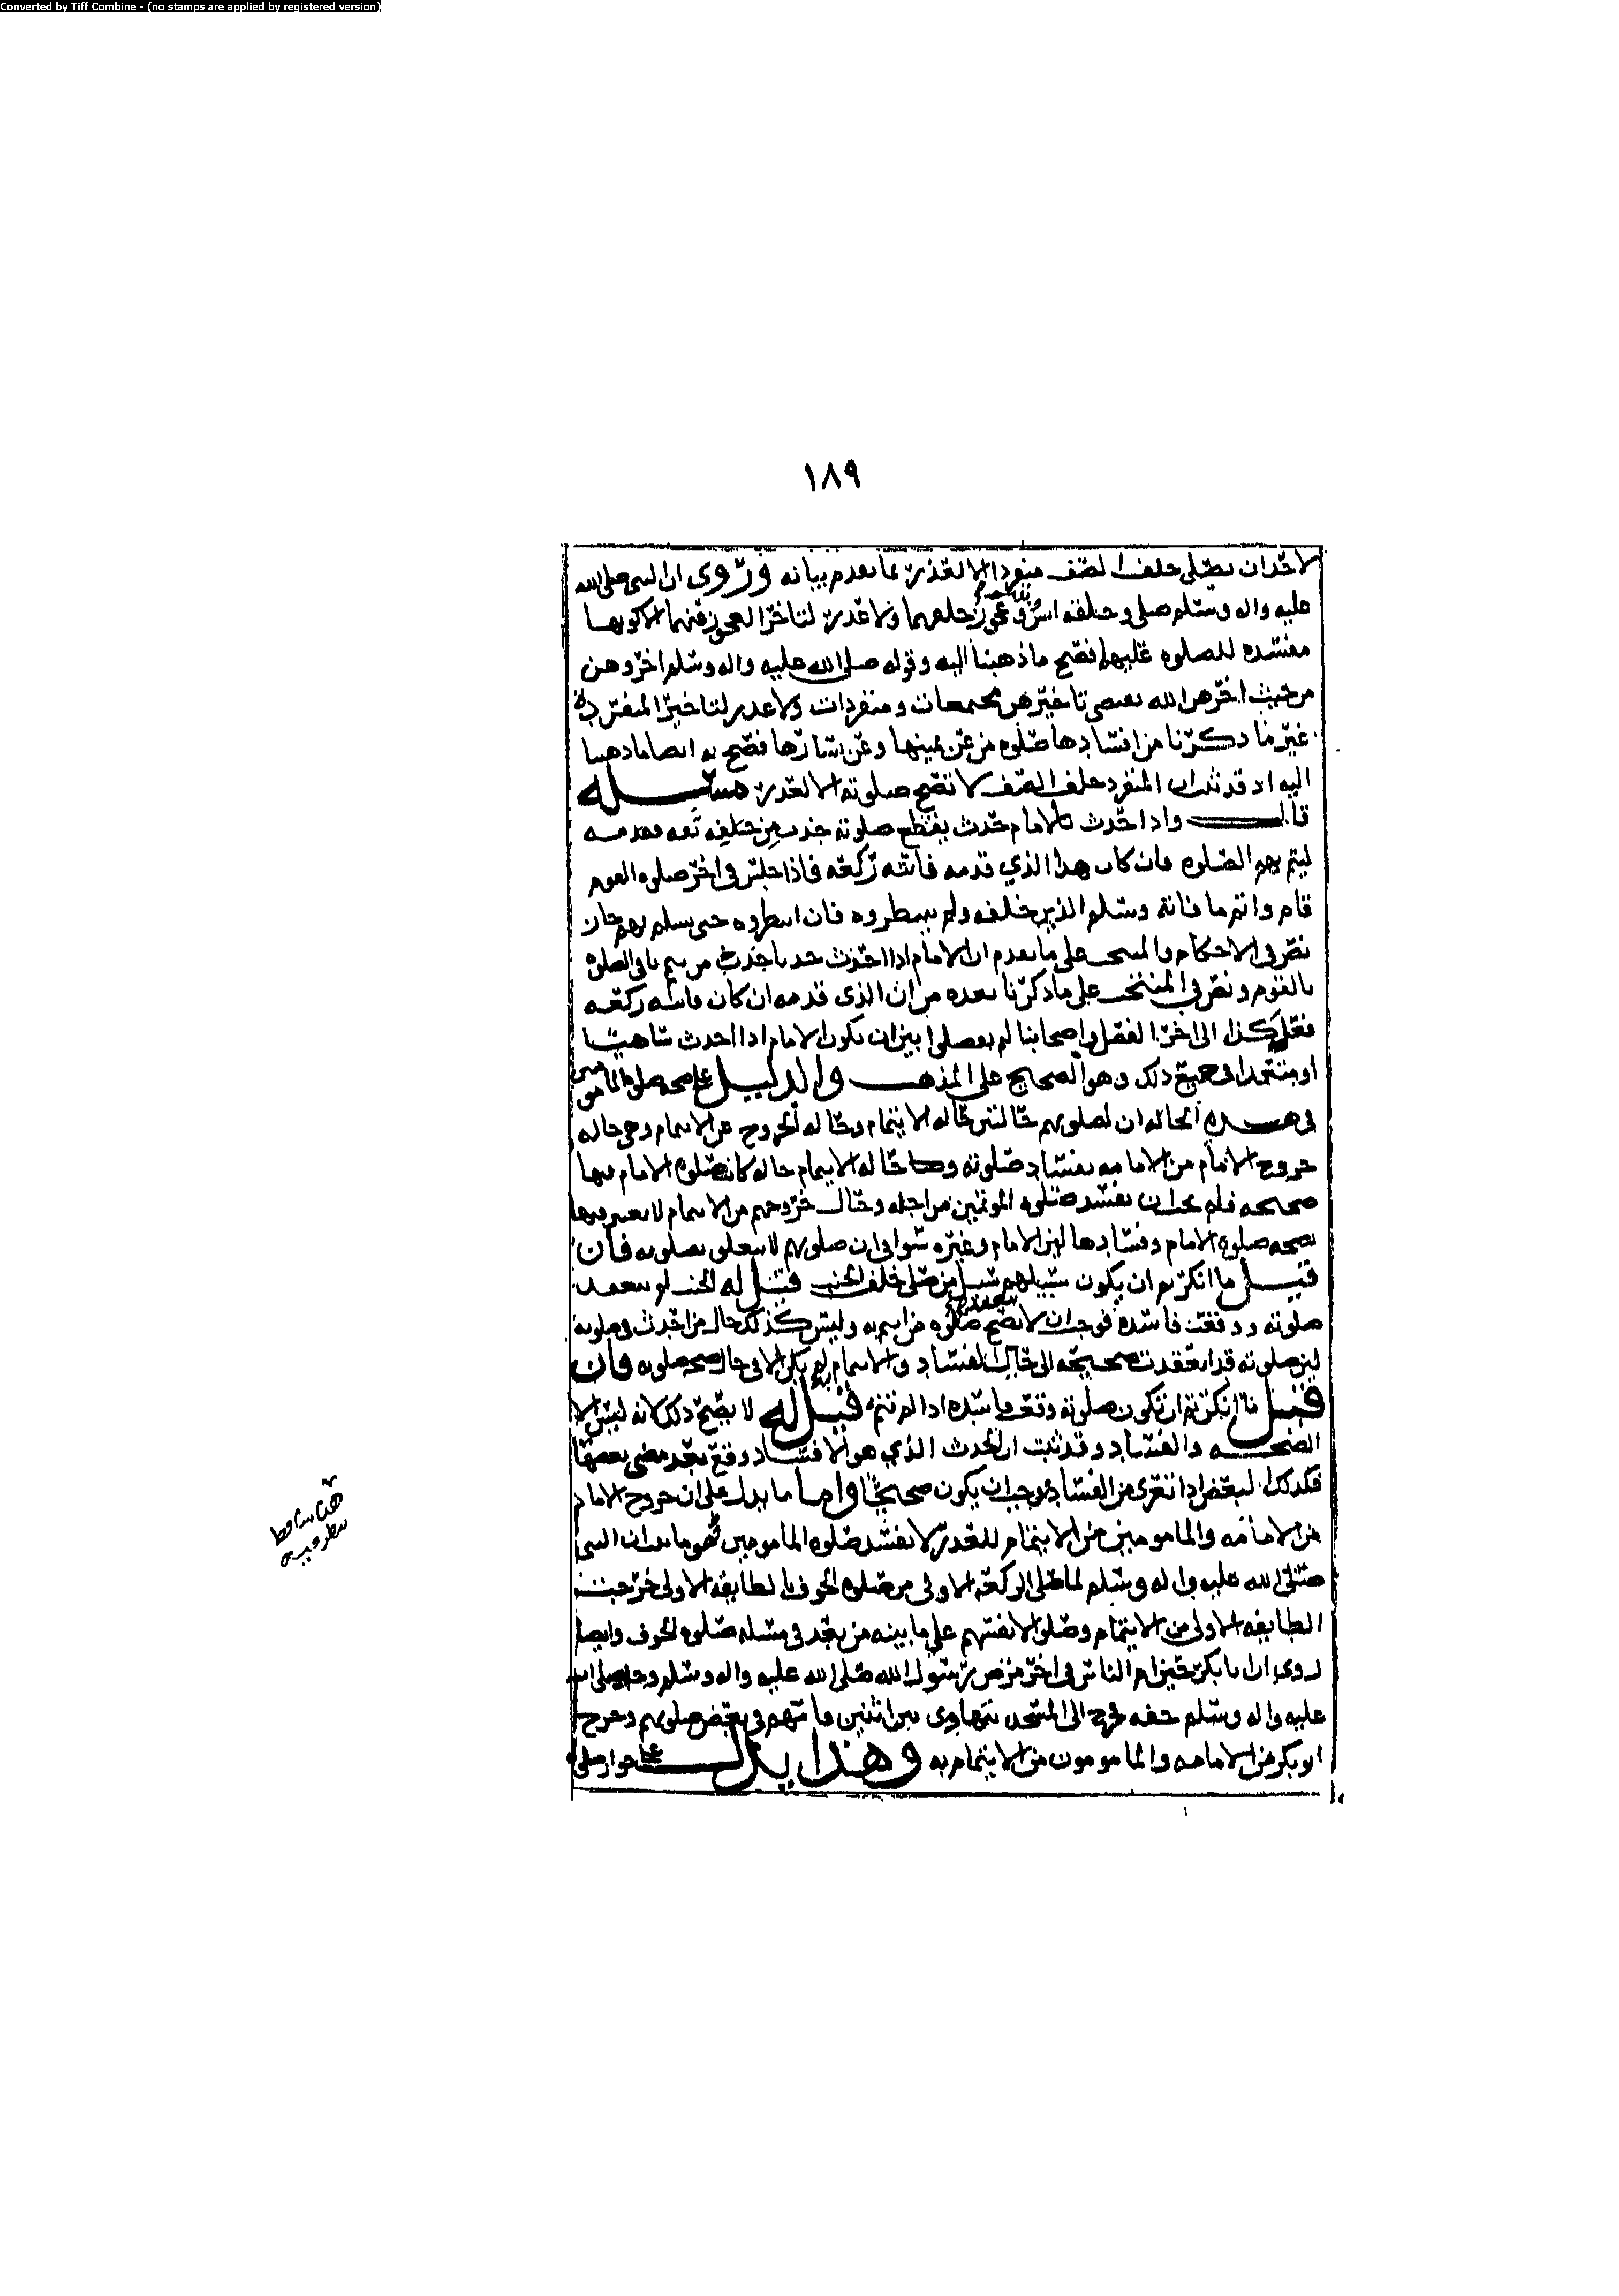 Converted by Tiff Combine - (no stamps are applied by registered version)
١٨٩
لاحد ان يصلي خلف الصف منفردا الا لعذر بما تقدم بيانه وروى ان النبي صلى الله
عليه واله وسلم صلى وخلفه انس وعجوز خلفهما ولا عذر لتأخر العجوز عنهما الا كونها
مفسده للصلوه عليهما فصح ما ذهبنا اليه وقوله صلى الله عليه واله وسلم اخروهن
من حيث اخرهن الله يقتضي تاخيرهن مجتمعات ومنفردات ولا عذر لتاخير المنفردة
غير ما ذكرنا من افسادها صلوه من عن يمينها وعن يسارها فصح به ايضا ما ذهبنا
اليه اذ قد ثبت ان المنفرد خلف الصف لا تصح صلوته الا لعذر مسئله
قال واذا احدث الامام حدث يقطع صلوته جذب من خلفه فقدمه
ليتم بهم الصلوه فان كان هذا الذي قدمه فاتته ركعه فاذا جلس في اخر صلوه القوم
قام واتم ما فاته وسلم الذين خلفه ولم ينتظروه فان انتظروه حتى يسلم بهم جاز
نص في الاحكام والمنتخب على ما تقدم ان الامام اذا احدث من يتم باقي الصلوه
بالقوم ونص في المنتخب على ما ذكرنا بعده من ان الذي قدمه ان كان فاتته ركعه
فعل كذا الى اخر الفصل واصحابنا لم يفصلوا بين ان يكون الامام اذا احدث ساهيا
او متعمدا في جميع ذلك وهو الصحيح على المذهب والدليل على صحه صلوه المامومين
في هذه الحاله ان لصلوتهم حالتين حاله الايتمام وحاله الخروج عن الايتمام وهي حاله
خروج الامام من الامامه بفساد صلوته وحاله الايتمام حاله كانت صلوه الامام فيها
صحيحه فلم يجز ان تفسد صلوه الموتمين من اجله وحال خروجهم من الايتمام لا تعتبر فيها
صحه صلوه الامام وفسادها لان الامام وغيره سوا في ان صلوتهم لا تتعلق بصلوته فان
قيل ما انكرتم ان يكون سبيلهم سبيل من صلى خلف الجنب قيل له الجنب لم تنعقد
صلوته ووقعت فاسده فوجب ان لا تصح صلوه من ايتم به وليس كذلك حال من احدث في صلوته
لان صلوته قد انعقدت صحيحه الى حال الفساد والايتمام به لم يكن الا في حال صحه صلوته فان
قيل ما انكرتم ان تكون صلوته وقعت فاسده اذا لم تتم قيل له لا يصح ذلك لانه ليس الا
الصحه والفساد وقد ثبت ان الحدث الذي هو الافساد وقع بعد مضي بعضها
فكذلك البعض اذا تعرى من الفساد فوجب ان يكون صحيحا واما ما يدل على ان خروج الامام
من الامامه والمامومين من الايتمام للعذر لا يفسد صلوه المامومين فهو ما ثبت ان النبي
صلى الله عليه واله وسلم لما صلى الركعه الاولى من صلوه الخوف بالطايفه الاولى خرجت
الطايفه الاولى من الايتمام وصلوا لانفسهم على ما بينه من بعد في مسئله صلوه الخوف وايضا
روي ان ابا بكر حين ام الناس في اخر مرض رسول الله صلى الله عليه واله وسلم وجد صلى الله
عليه واله وسلم خفه فخرج الى المسجد يتهادى بين اثنين فامهم في بعض صلوتهم وخرج
ابو بكر من الامامه والمامومون من الايتمام به وهذا يدل على جواز صلوه